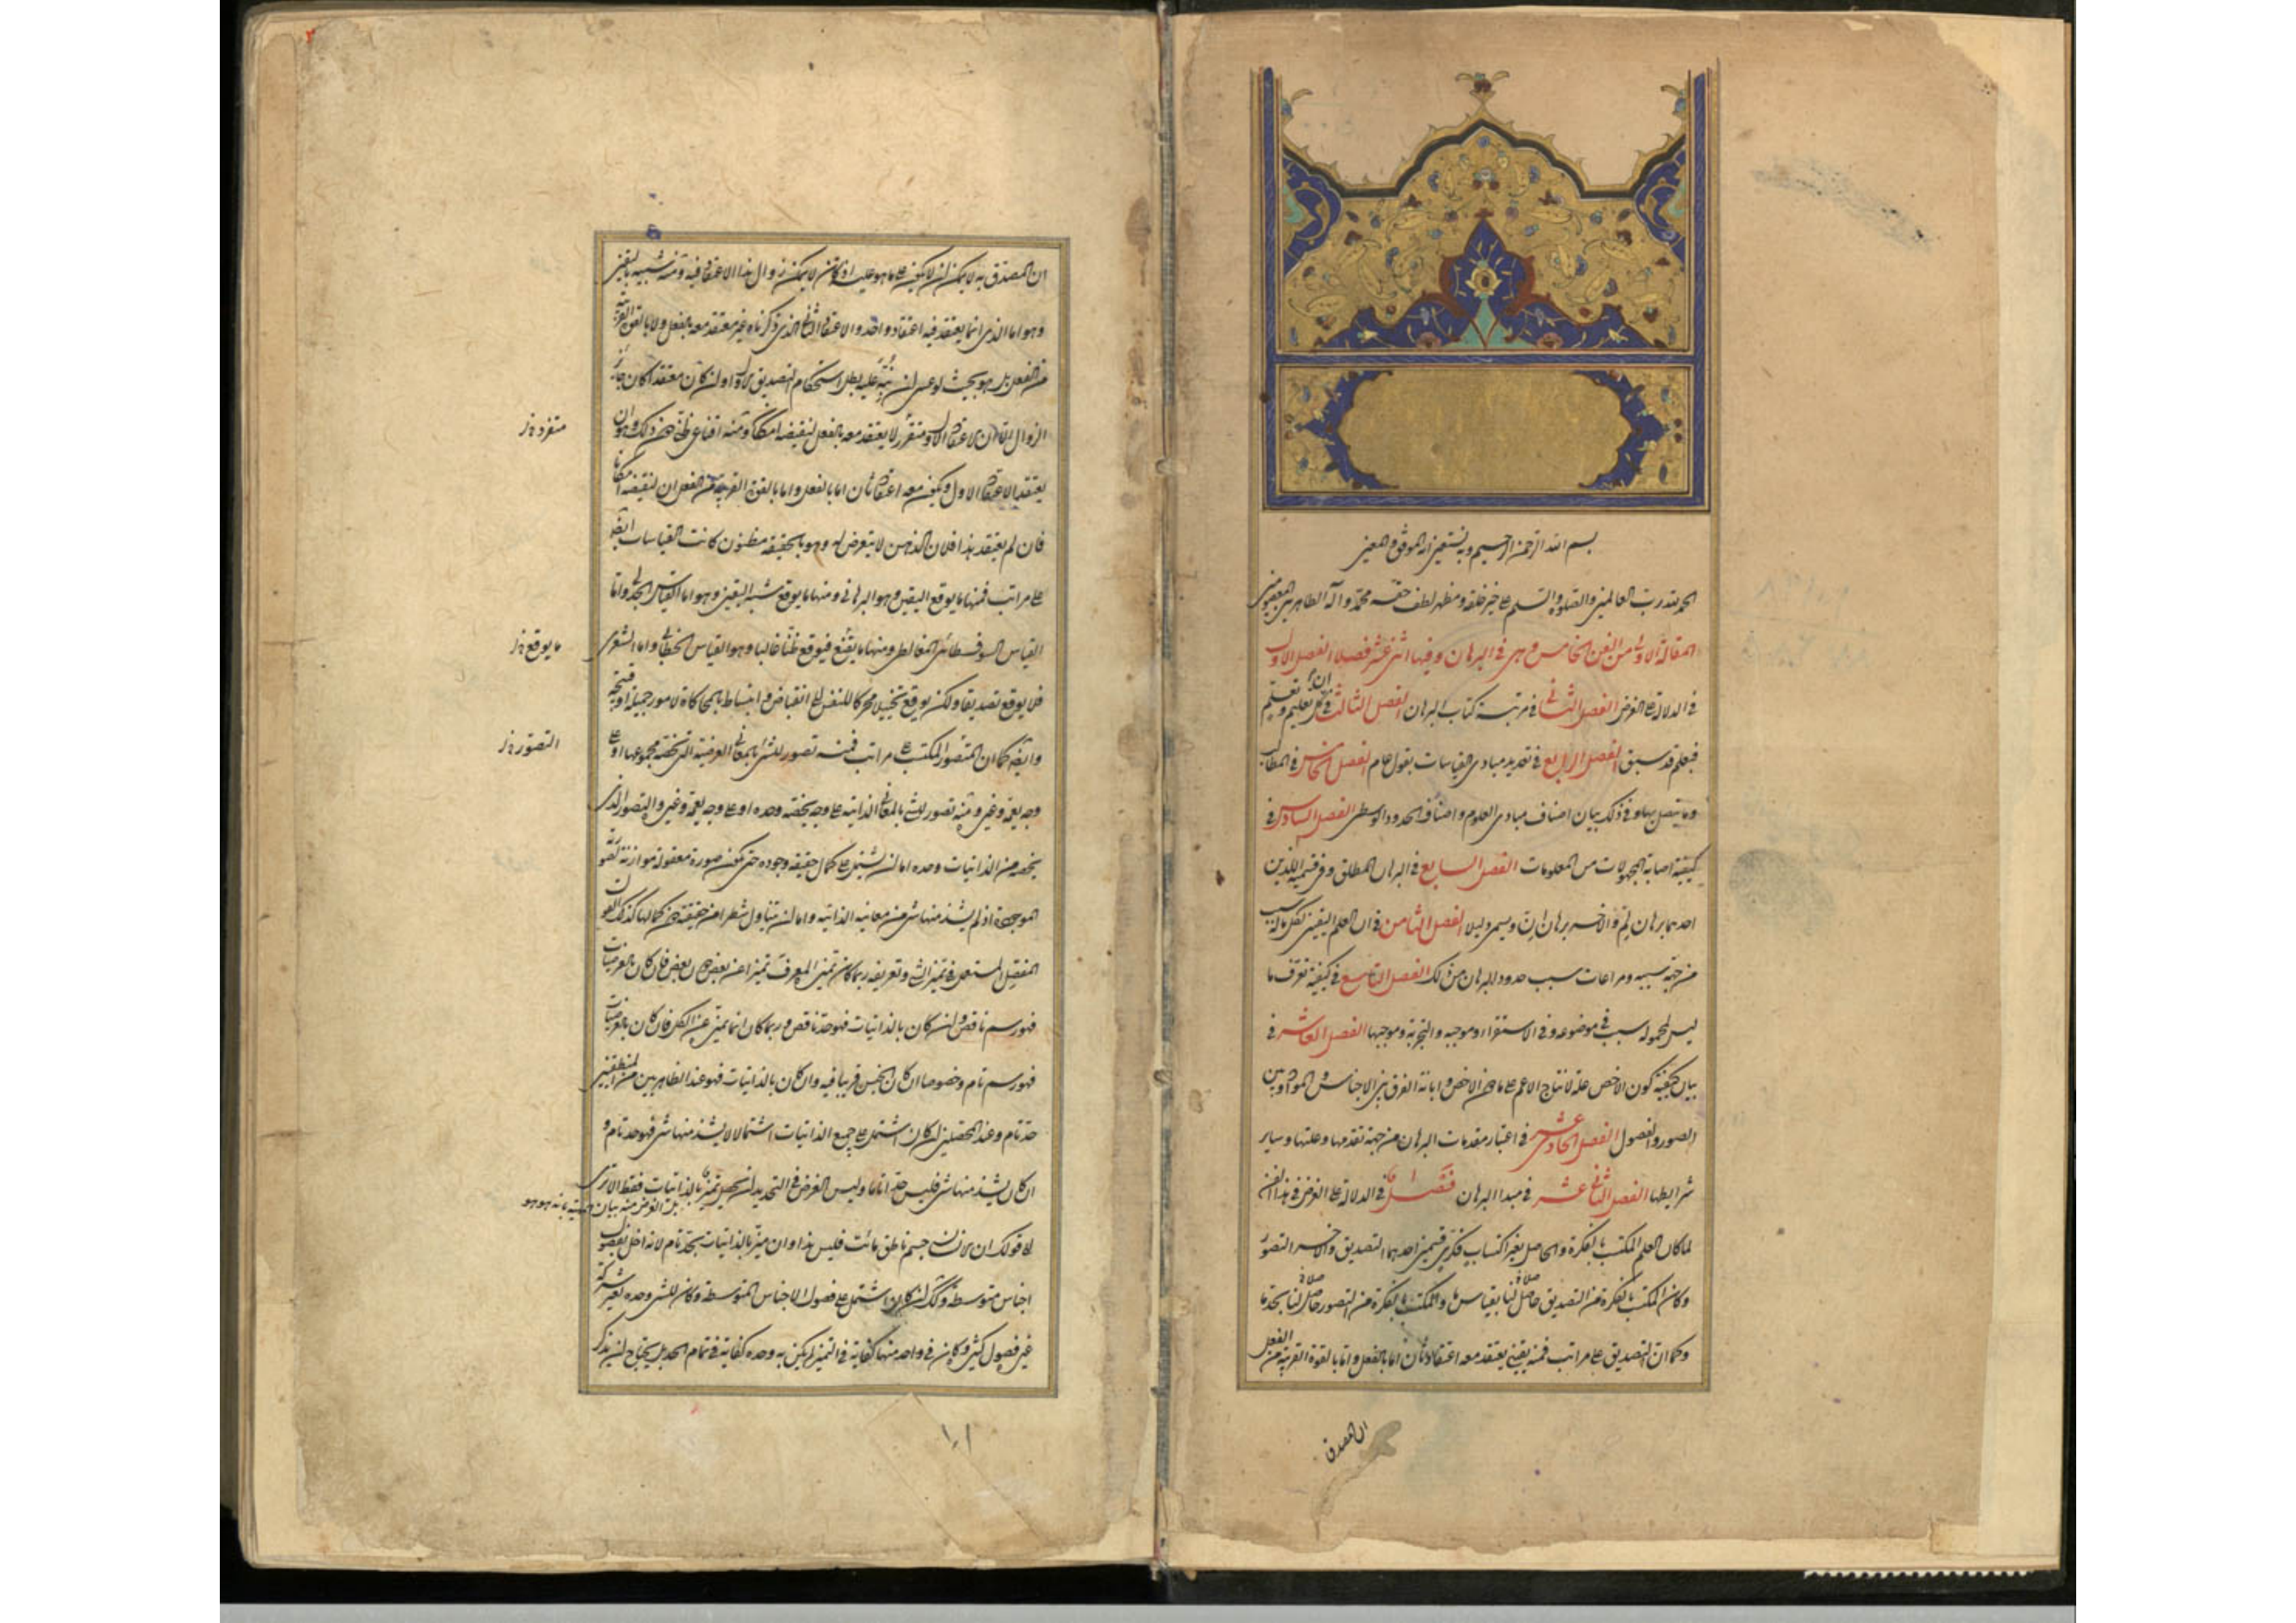 بسم الله الرحمن الرحيم وبه نستعين انه الموفق والمعين
الحمد لله رب العالمين والصلوة والسلم على خير خلقه ومظهر لطف حقه محمد وآله الطاهرين المعصومين
المقالة الاولى من الفن الخامس وهى فى البرهان وفيها اثنى عشر فصلا الفصل الاول
فى الدلالة على الغرض الفصل الثانى فى مرتبة كتاب البرهان الفصل الثالث فى ان كل تعليم وتعلم
فبعلم قد سبق الفصل الرابع فى تعديد مبادى القياسات بقول عام الفصل الخامس فى المطالب
وما يتصل بها وفى ذلك بيان اصناف مبادى العلوم واصناف الحدود الوسطى الفصل السادس فى
كيفية اصابة المجهولات من المعلومات الفصل السابع فى البرهان المطلق وفى قسميه اللذين
احدهما برهان لم والاخر برهان ان ويسمى دليلا الفصل الثامن فى ان العلم اليقينى لكل ماله سبب
من جهة سببه ومراعات سبب حدود البرهان من ذلك الفصل التاسع فى كيفية تعرف ما
ليس لمحموله سبب فى موضوعه وفى الاستقراء وموجبه والتجربة وموجبها الفصل العاشر فى
بيان كيفية كون الاخص علة لانتاج الاعم على ما دون الاخص وابانة الفرق بين الاجناس والمواد وبين
الصور والفصول الفصل الحادى عشر فى اعتبار مقدمات البرهان من جهة تقدمها وعليتها وساير
شرايطها الفصل الثانى عشر فى مبدا البرهان فصل ا فى الدلالة على الغرض فى هذا الفن
لما كان العلم المكتسب بالفكرة والحاصل بغير اكتساب فكرى قسمين احدهما التصديق والاخر التصور
وكان المكتسب بالفكرة من التصديق حاصلا لنا بقياس ما والمكتسب بالفكرة من التصور حاصلا لنا بحد ما
وكما ان التصديق على مراتب فمنه يقينى يعتقد معه اعتقاد ثان اما بالفعل واما بالقوة القريبة من الفعل
ان المصدق
ان المصدق به لا يمكن ان لا يكون على ما هو عليه اذ كان لا يمكن زوال هذا الاعتقاد فيه ومنه شبيه باليقين
وهو اما الذى انما يعتقد فيه اعتقاد واحد والاعتقاد الثانى الذى ذكرناه غير معتقد معه بالفعل ولا بالقوة القريبة
من الفعل بل هو بحيث لو عسى ان نبه عليه بطل استحكام التصديق الاول او ان كان معتقدا كان جايز
الزوال الا ان الاعتقاد الاول متقرر لا يعتقد معه بالفعل لنقيضه امكان ومنه اقناعى ظنى دون ذلك وهو ان
يعتقد الاعتقاد الاول ويكون معه اعتقاد ثان اما بالفعل واما بالقوة القريبة من الفعل ان لنقيضه امكانا
فان لم يعتقد هذا فلان الذهن لا يتعرض له وهو بالحقيقة مظنون كانت القياسات ايضا
على مراتب فمنها ما يوقع اليقين وهو البرهانى ومنها ما يوقع شبه اليقين وهو اما القياس الجدلى واما
القياس السوفسطائى المغالطى ومنها ما يقنع فيوقع ظنا غالبا وهو القياس الخطابى واما الشعرى
فلا يوقع تصديقا ولكن يوقع تخييلا محركا للنفس الى انقباض وانبساط بالمحاكاة لامور جميلة او قبيحة
وايضا كما ان التصور المكتسب على مراتب فمنه تصور للشئ بالمعانى العرضية التى تخصه مجموعها او على
وجه يعمه وغيره ومنه تصور للشئ بالمعانى الذاتية على وجه يخصه وحده او على وجه يعمه وغيره والتصور الذى
يخصه من الذاتيات وحده اما ان يشتمل على كمال حقيقة وجوده حتى يكون صورة معقولة موازنة لصورته
الموجودة اذ لم يشذ منها شئ من معانيه الذاتية واما ان يتناول شطرا من حقيقته دون كمالها كذلك القول
المفصل المستعمل فى تمييز الشئ وتعريفه ربما كان تمييز المعرف تمييزا عن بعض دون بعض فان كان بالعرضيات
فهو رسم ناقص وان كان بالذاتيات فهو حد ناقص وربما كان انما يميزه عن الكل فان كان بالعرضيات
فهو رسم تام وخصوصا ان كان الجنس قريبا فيه وان كان بالذاتيات فهو عند الظاهريين من المنطقيين
حد تام وعند المحصلين ان كان اشتمل على جميع الذاتيات اشتمالا لا يشذ منها شئ فهو حد تام و
ان كان يشذ منها شئ فليس حدا تاما وليس الغرض فى التحديد ان يحصل تمييز بالذاتيات فقط الا ترى
بل الغرض منه بيان
لا قولك ان الانسان جسم ناطق مائت فليس هذا وان ميز بالذاتيات بحد تام لانه اخل بفصول
اجناس متوسطة وكذلك ان كان اشتمل على فصول الاجناس المتوسطة وكان للشئ وحده بغير شركة
غيره فصول كثيرة وكان فى واحد منها كفاية فى التمييز لم يكن به وحده كفاية فى تمام الحد بل يحتاج ان يذكر
ما يوقع
التصور